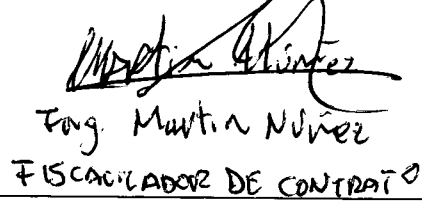 Martin Núñez
Ing. Martin Núñez
FISCALIZADOR DE CONTRATO